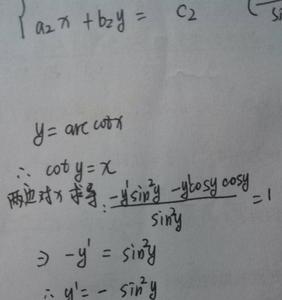 { a₂x + b₂y = c₂
y = arc cot x
∴ cot y = x
两边对x求导: (-y'sin²y - y'cosy cosy)/sin²y = 1
⇒ -y' = sin²y
∴ y' = - sin²y